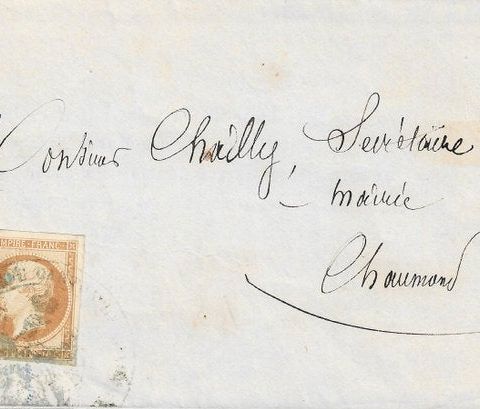 Monsieur Chailly, Secrétaire
mairie
Chaumond
EMPIRE FRANC